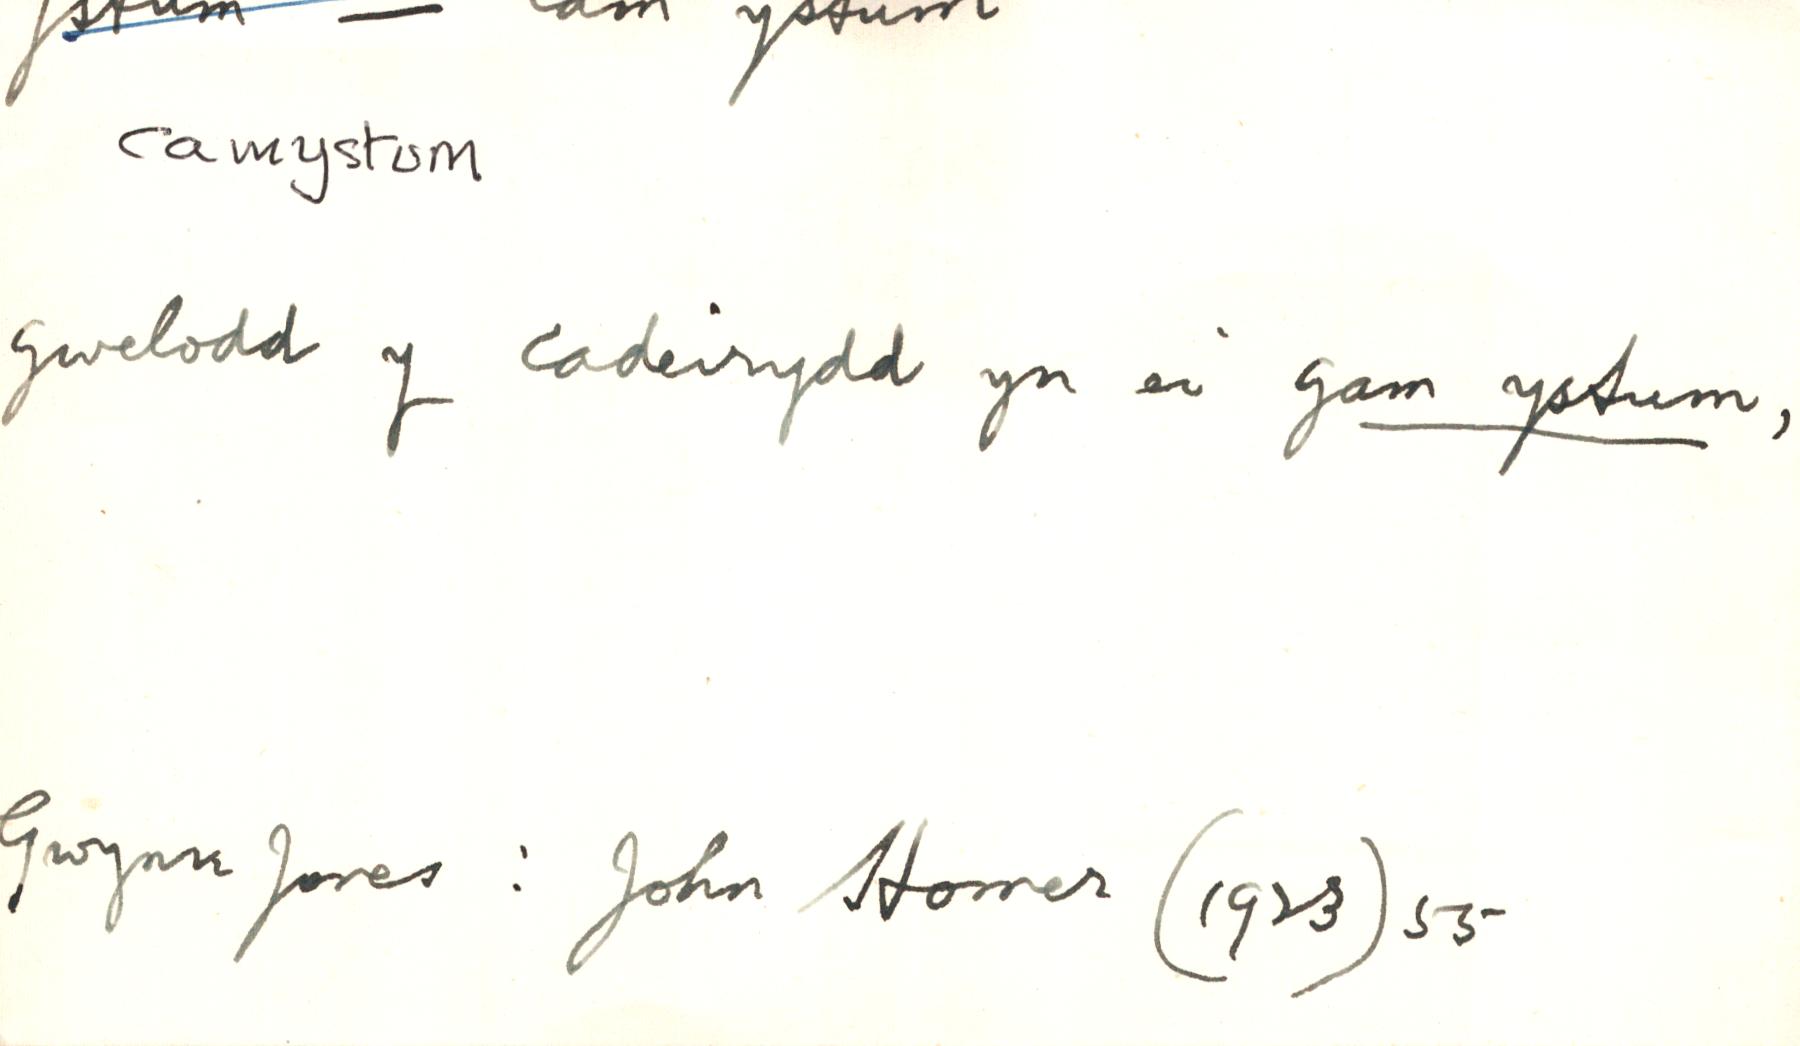 ystum — cam ystum
camystum
gwelodd y cadeirydd yn ei gam ystum,
Gwynn Jones : John Homer (1923) 55